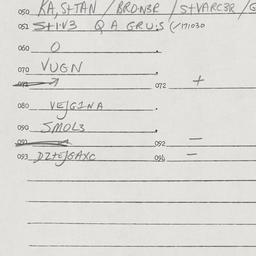 050 KA, S+TAN / BRON3R / S+VARC3R / G
051 S+IV3 Q A GRUS (/171030
060 O
070 VUGN
071 072 +
080 VEJG1NA
090 SMOL3
091 092 —
093 DZ+EJGAXC 094 —